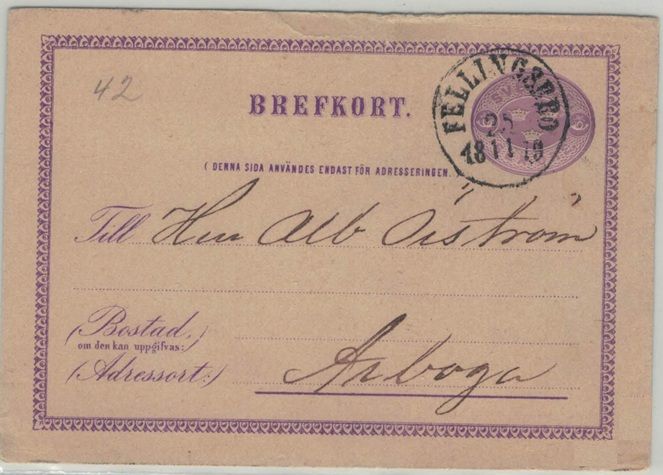 42
BREFKORT.
FELLINGSBRO
25
18 11 79
( DENNA SIDA ANVÄNDES ENDAST FÖR ADRESSERINGEN.
Till Herr Alb Öiström
(Bostad,
om den kan uppgifvas:)
(Adressort:) Arboga